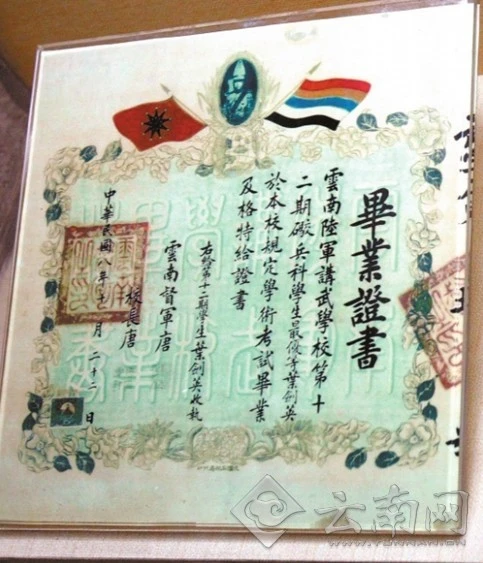 畢業證書
雲南陸軍講武學校第十
二期礮兵科學生最優等葉劍英
於本校規定學術考試畢業
及格特給證書
右給第十二期學生葉劍英收執
雲南督軍唐
校長唐
中華民國八年十二月二十二日
云南网
WWW.YUNNAN.CN